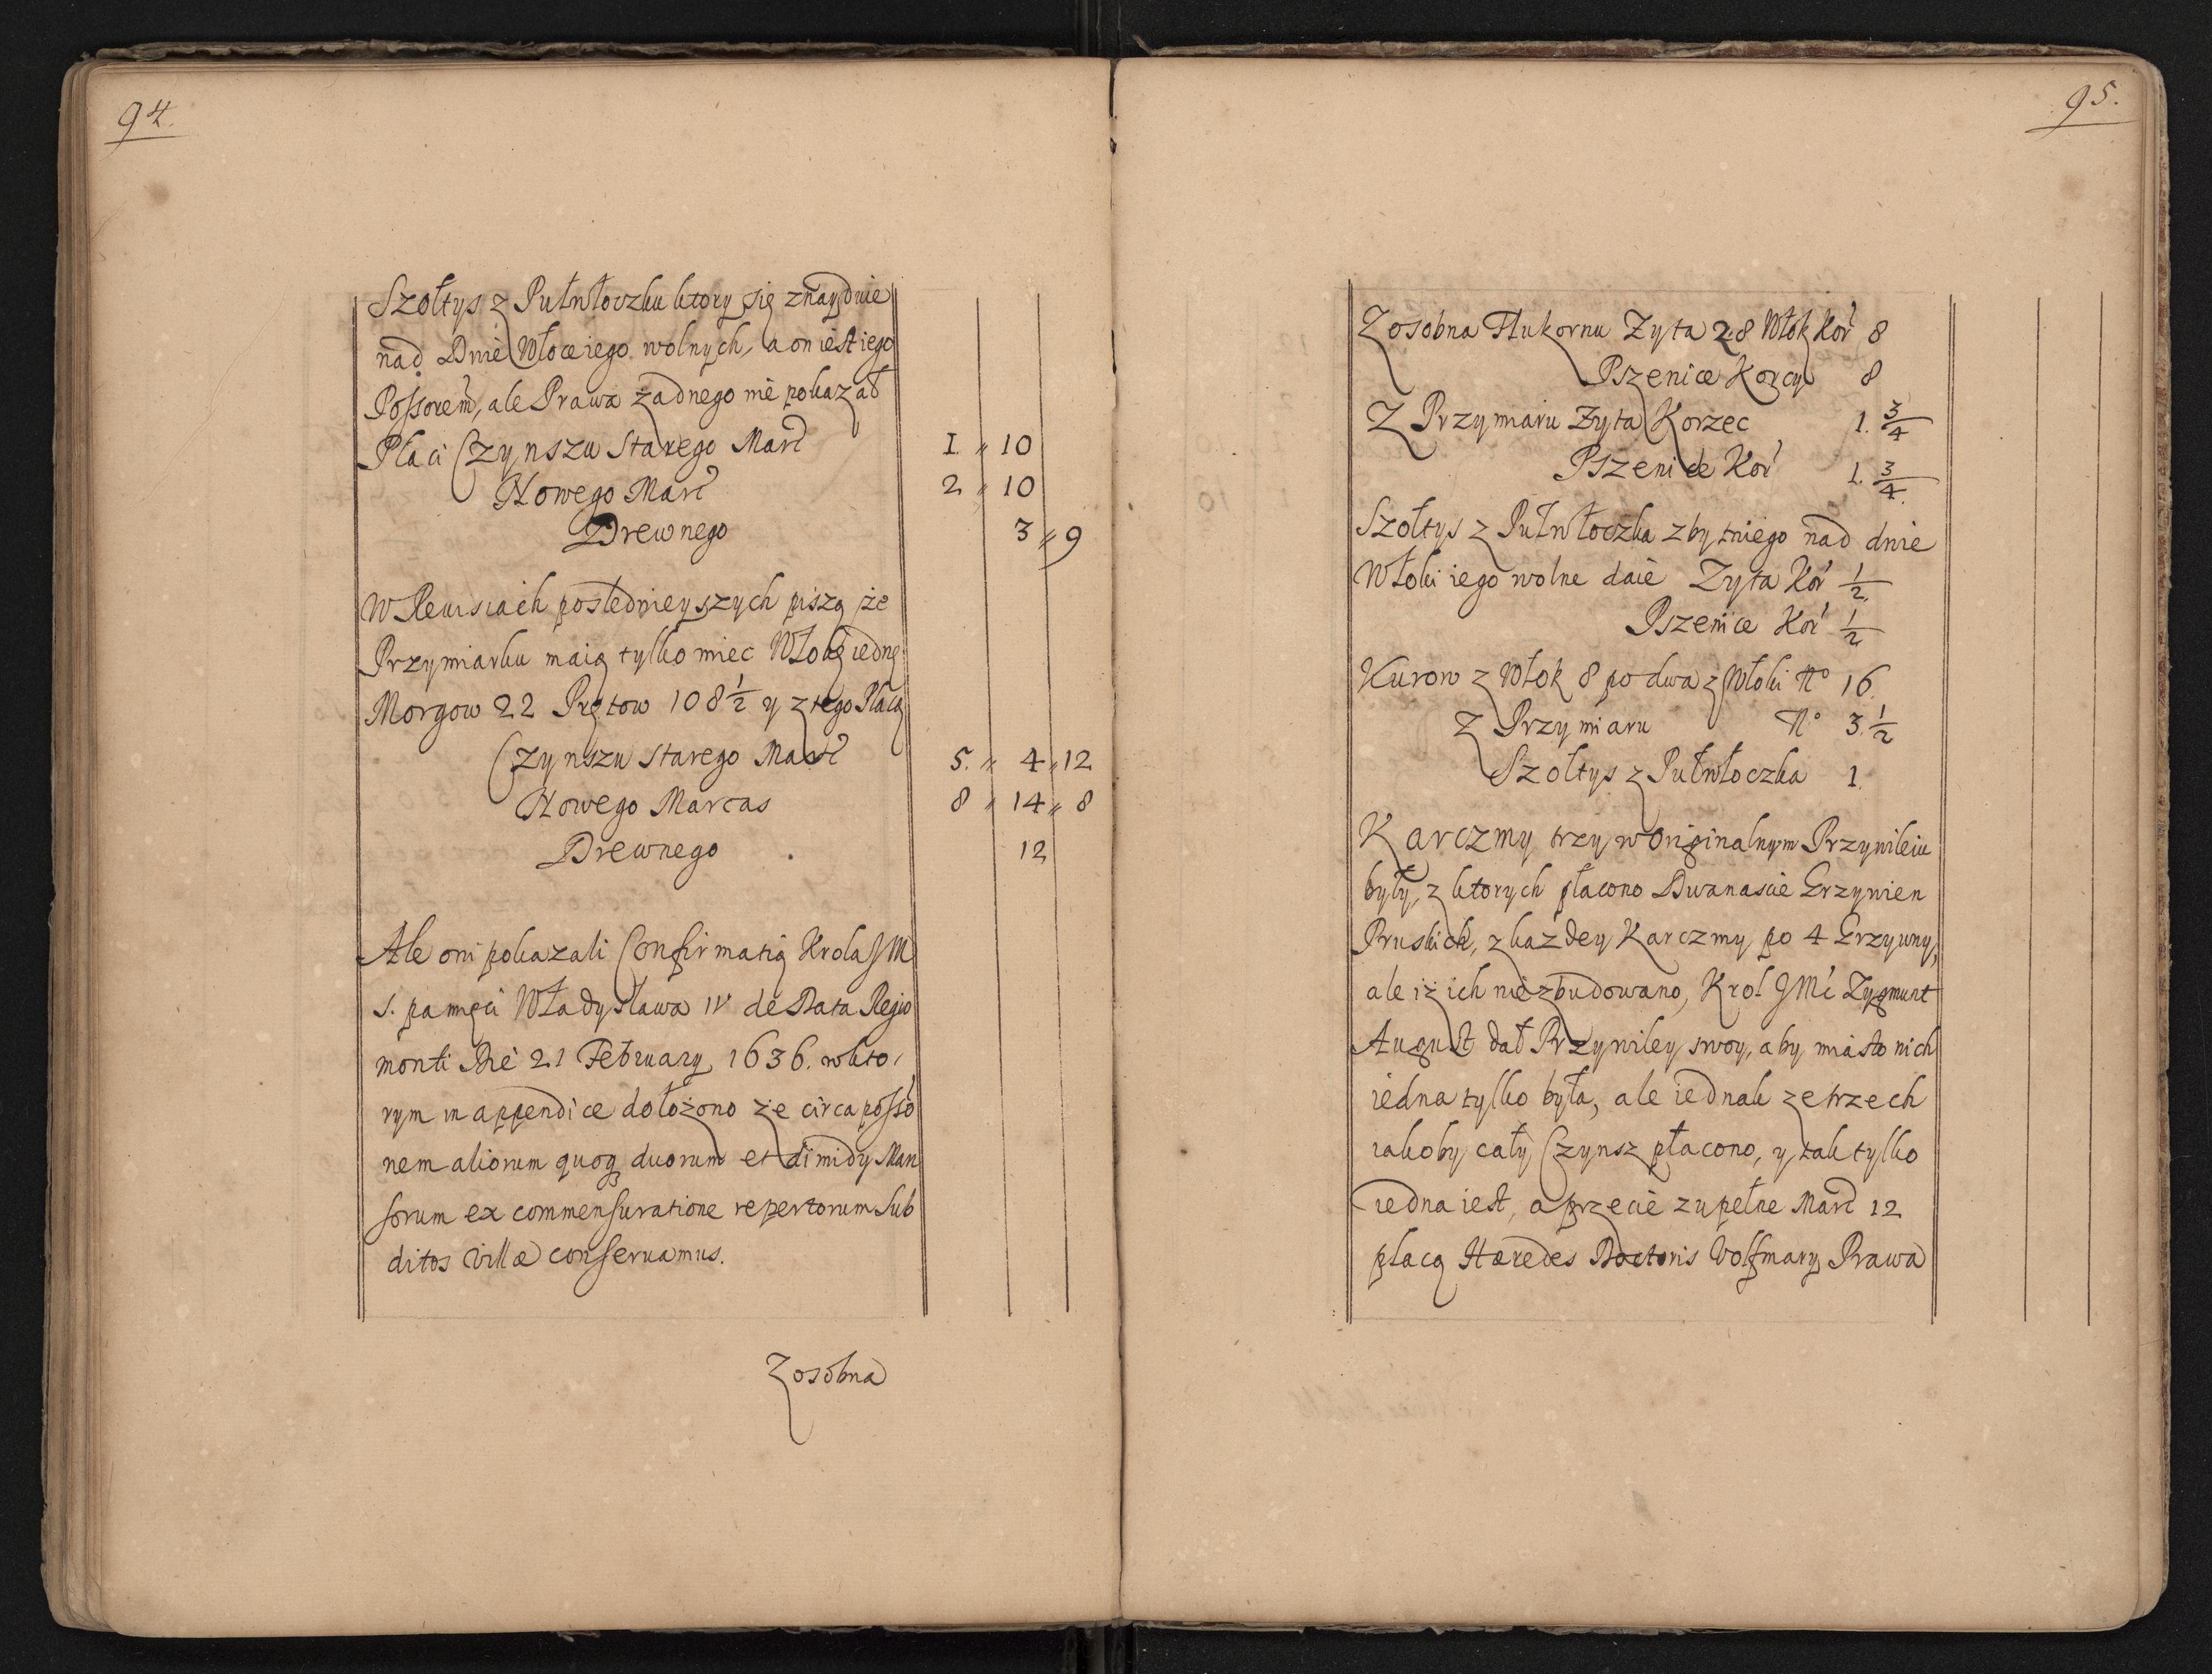 94.
Szołtys z Pułwłoczku ktory się znayduie
nad Dwie Włoce iego wolnych, a on iest iego
Possorem, ale Prawa żadnego nie pokazał
Płaci Czynszu Starego Marc 1 " 10
Nowego Marc 2 " 10
Drewnego 3 " 9
W Rewisiach poslednieyszych piszą że
Przymiarku maią tylko miec Włokę iednę
Morgow 22 Prętow 108 1/2 y z tego Płacą
Czynszu starego Marc 5. " 4 " 12
Nowego Marcas 8 " 14 " 8
Drewnego 12
Ale oni pokazali Confirmatią Krola JM
s. pamęci Władysława IV de Data Regio
monti Die 21 February 1636. w kto,
rym in appendice dołożono że circa posso
nem aliorum quoq duorum et dimidy Man
sorum ex commensuratione repertorum Sub
ditos villæ conseruamus.
Zosobna
95.
Zosobna Płukornu Zyta z 8 Włok Kor 8
Pszenice Korcy 8
Z Przymiaru Zyta Korzec 1. 3/4
Pszenice Kor 1. 3/4.
Szołtys z Pułwłoczka zbytniego nad dwie
Włoki iego wolne daie Zyta Kor 1/2.
Pszenice Kor 1/2
Kurow z Włok 8 po dwa z Włoki No 16.
Z Przymiaru No 3. 1/2
Szołtys z Pułwłoczka 1.
Karczmy trzy w originalnym Przywileiu
były, z ktorych płacono Dwanascie Grzywien
Pruskich, z każdey Karczmy po 4 Grzywny,
ale iż ich niezbudowano, Krol JMć Zygmunt
August dał Przywiley swoy, aby miasto nich
iedna tylko była, ale iednak ze trzech
iakoby cały Czynsz płacono, y tak tylko
iedna iest, a przecie zupełne Marc 12
płacą Hæredes Doctoris Volfmary Prawa